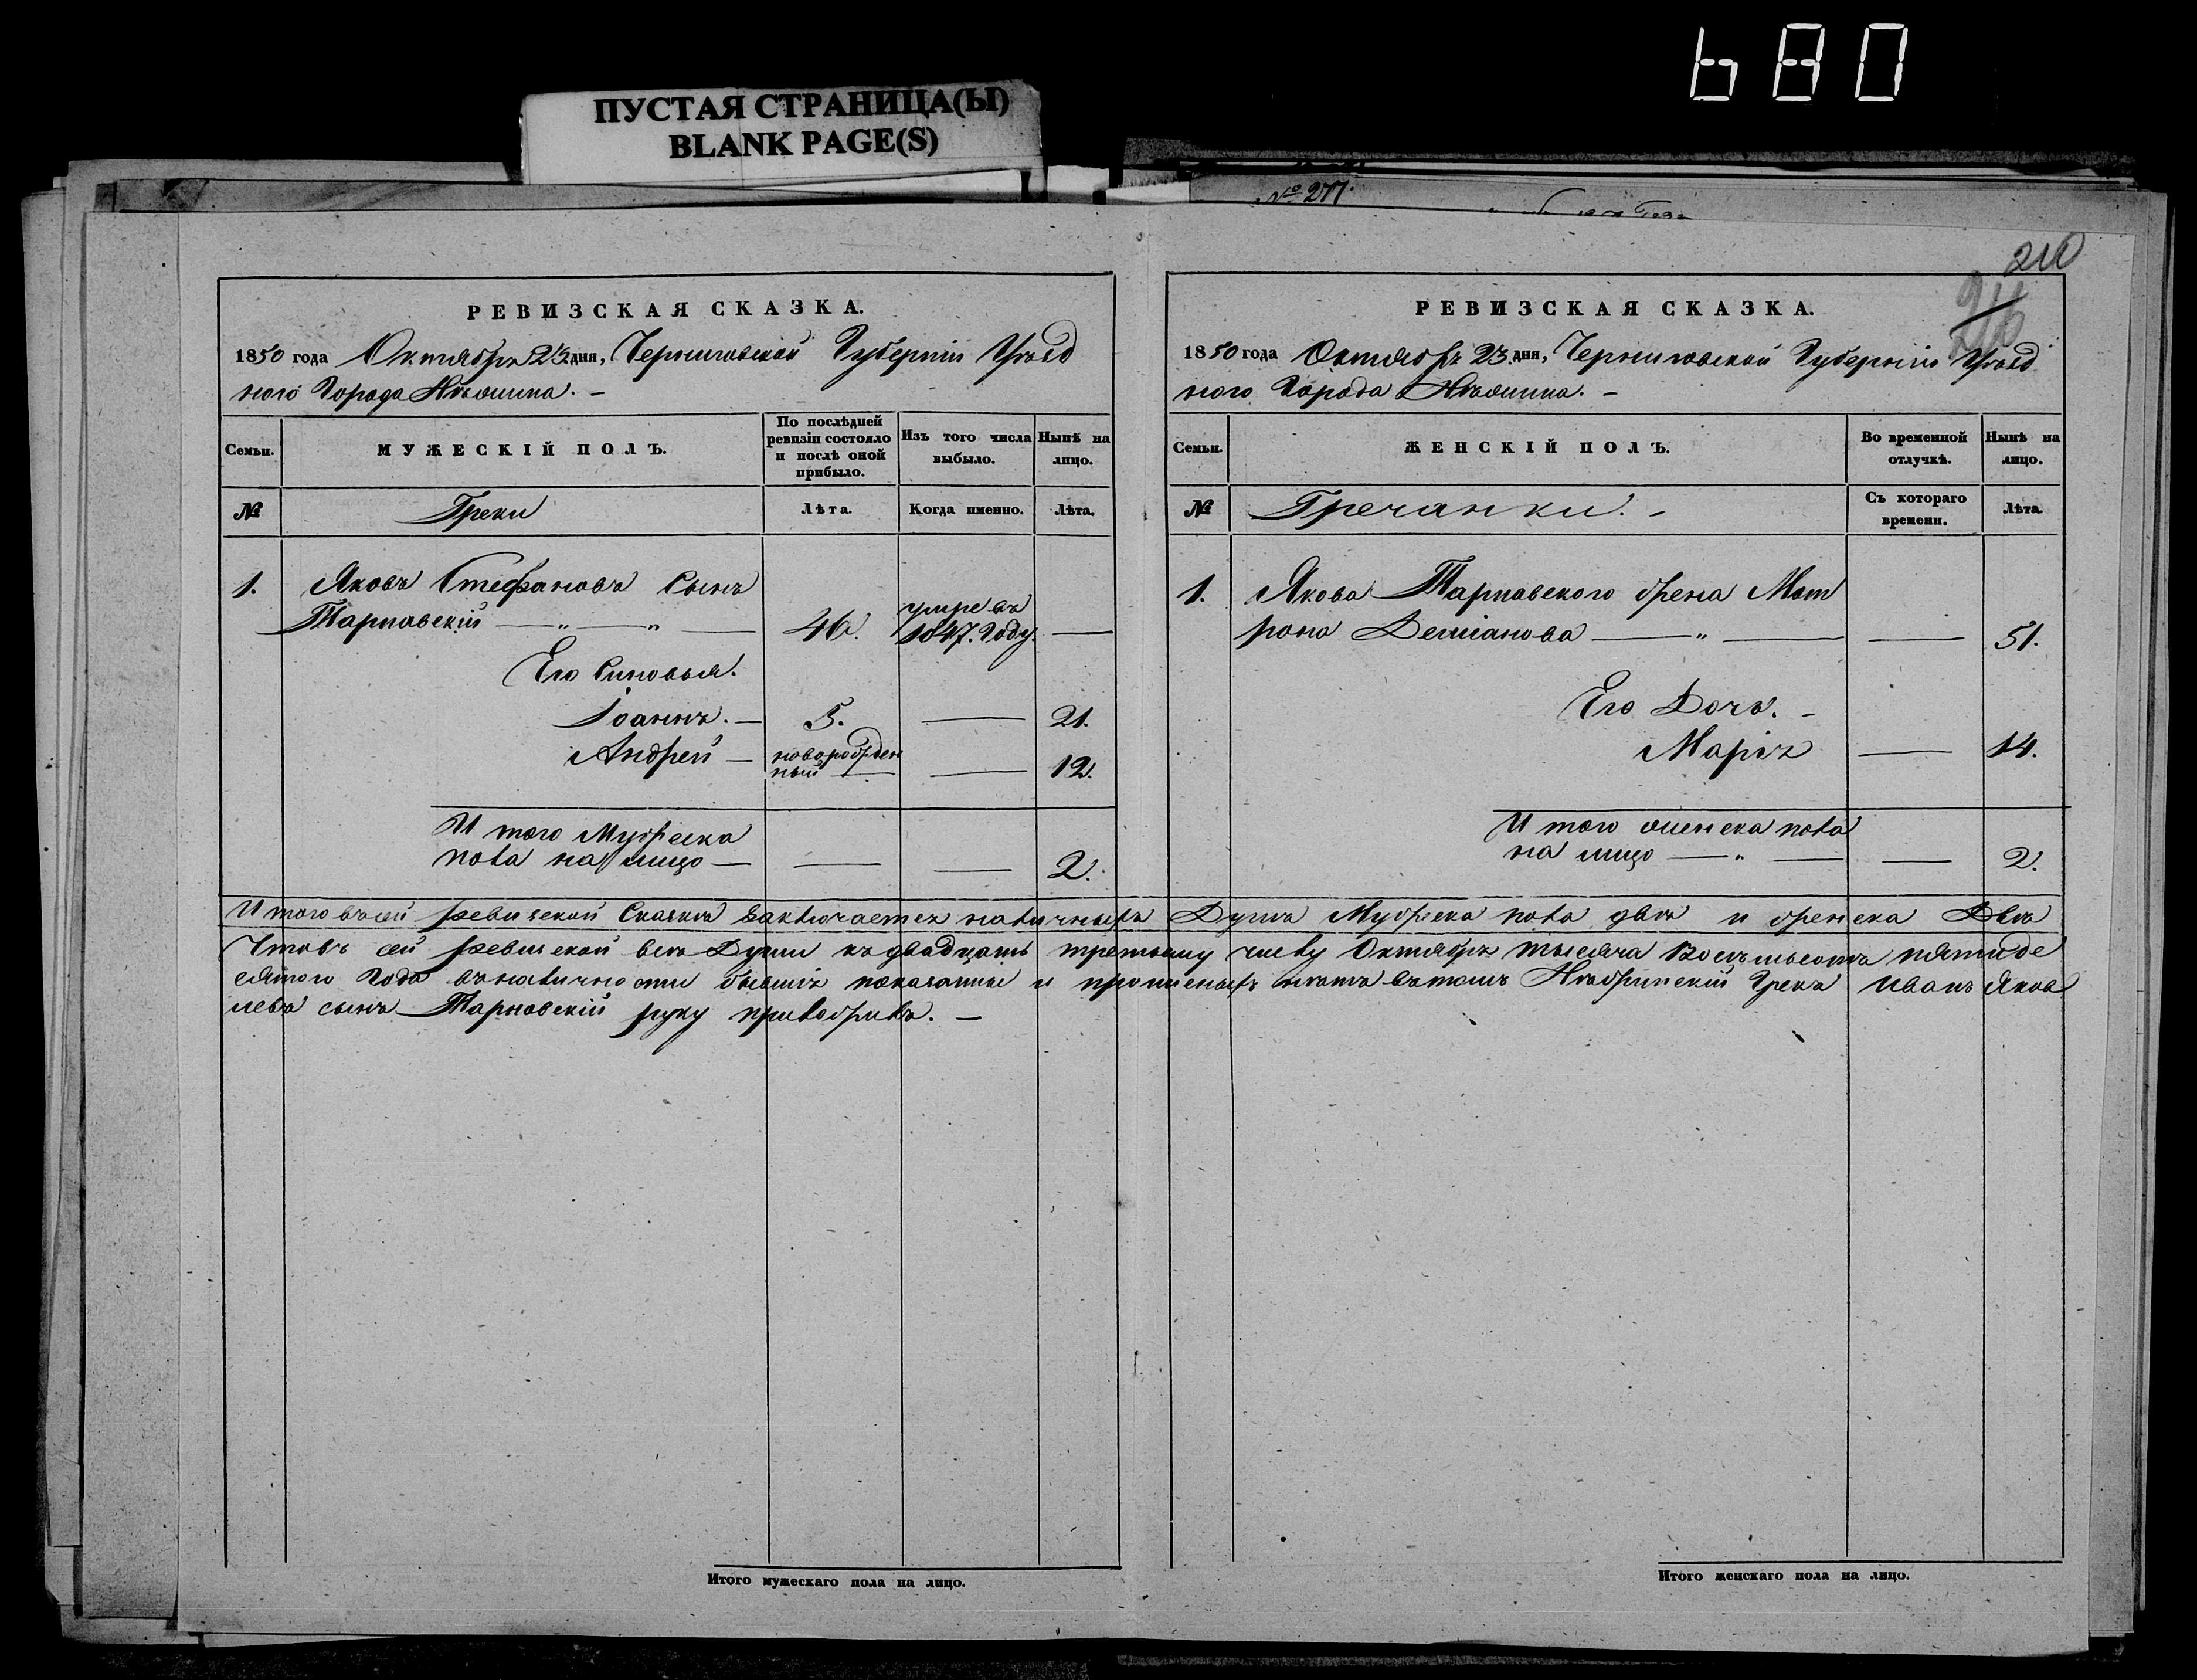 680
ПУСТАЯ СТРАНИЦА(Ы)
BLANK PAGE(S)
№ 277.
210
РЕВИЗСКАЯ СКАЗКА.
1850 года Октября 23 дня, Черниговской Губерніи Уѣзд
ного Города Нѣжина. –
Семьи.
МУЖЕСКІЙ ПОЛЪ.
По послѣдней
ревизіи состояло
и послѣ оной
прибыло.
Изъ того числа
выбыло.
Нынѣ на
лицо.
№
Греки
Лѣта.
Когда именно.
Лѣта.
1. Яковъ Стефановъ Сынъ
Тарнавскій — „ — „ — 46. умре въ 1847. Году. —
Его Синовья.
Іоаннъ. — 5. — 21.
Андрей — новорожден
ный — — 12.
И того Мужеска
пола на лицо — — — 2.
РЕВИЗСКАЯ СКАЗКА.
1850 года Октября 23 дня, Черниговской Губерніи Уѣзд
ного Города Нѣжина. –
Семьи.
ЖЕНСКІЙ ПОЛЪ.
Во временной
отлучкѣ.
Нынѣ на
лицо.
№
Гречанки. –
Съ котораго
времени.
Лѣта.
1. Якова Тарнавского жена Мат
рона Деміанова — „ — — 51.
Его Дочь. –
Марія — 14.
И того женска пола
на лицо — „ — — 2.
И того въ сей ревизской Сказкѣ заключается наличныхъ Душъ Мужеска пола двѣ и женска Двѣ
Что въ сей ревизской всѣ Души къ двадцать третьему числу Октября тысяча восемьсотъ пятиде
сятого Года въ наличности бывшіе показанные и прописныхъ нѣтъ въ томъ Нѣжинскій Грекъ Иванъ Яков
левъ сынъ Тарнавскій руку приложилъ. –
Итого мужескаго пола на лицо.
Итого женскаго пола на лицо.